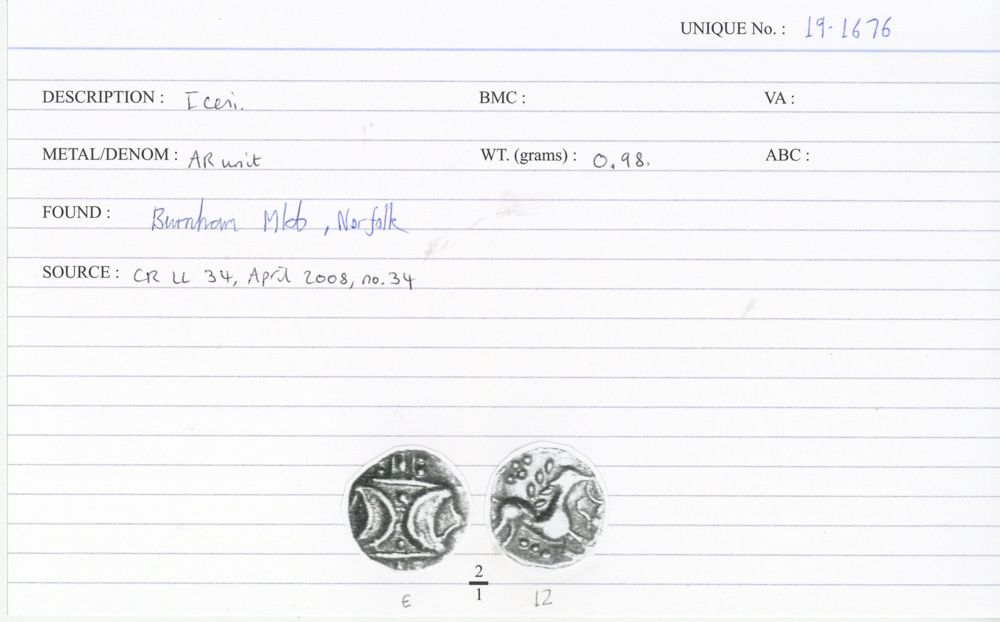 UNIQUE No. : 19-1676
DESCRIPTION : Iceni. BMC : VA :
METAL/DENOM : AR unit WT. (grams) : 0.98. ABC :
FOUND : Burnham Mkt, Norfolk
SOURCE : CR LL 34, April 2008, no. 34
2
1
E 12